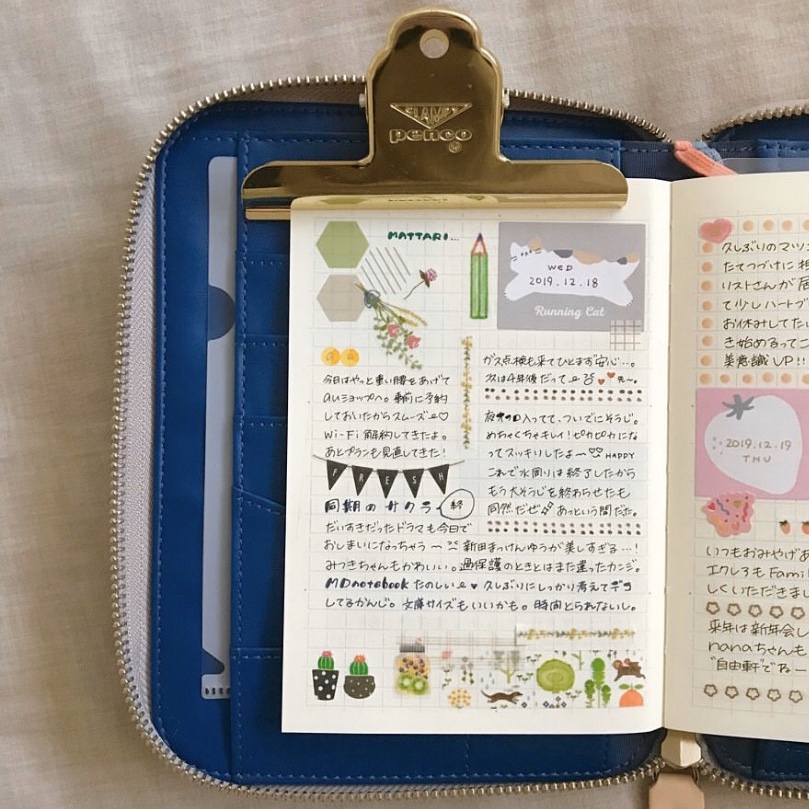 CLAMPY
penco
®
MATTARI...
WED
2019.12.18
Running Cat
今日はやっと重い腰をあげて
auショップへ。事前に予約
しておいたからスムーズ♡
Wi-Fi 解約してきたよ。
あとプランも見直してきた!
FRESH
同期のサクラ 終
だいすきだったドラマも今日で
おしまいになっちゃう〜 新田まっけんゆうが美しすぎる…!
みつきちゃんもかわいい。過保護のときとはまた違ったカンジ。
MDnotebook たのしい ♥ 久しぶりにしっかり考えてデコ
してるかんじ。文庫サイズもいいかも。時間とられないし。
ガス点検も来てひとまず安心…。
次は4年後だって
入ってて、ついでにそうじ。
めちゃくちゃキレイ!ピカピカにな
ってスッキリしたよ〜 HAPPY
これで水周りは終了したから
もう大そうじを終わらせたも
同然だぜ あっという間だた。
久しぶりのマツ
たてつづけに担
リストさんが
て少しハート
お休みしてた
き始めるってこ
美意識UP!!
2019.12.19
THU
いつもおみやげ
エクレアもFami
しくいただきま
来年は新年会し
nanaちゃんも
"自由軒"でね